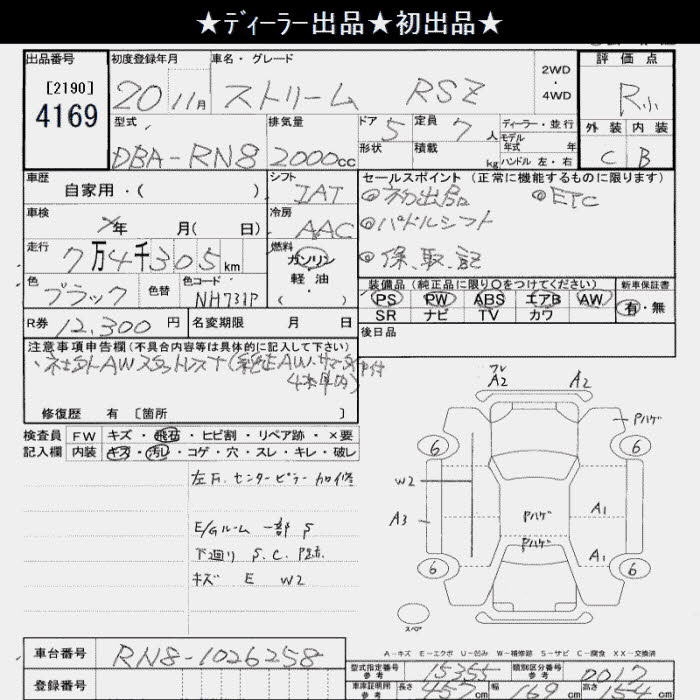 ★ディーラー出品★初出品★
出品番号 初度登録年月 車名・グレード 評価点
[2190] 4169
20 11月 ストリーム RSZ 2WD・4WD R小
型式 排気量 ドア 5 定員 7人 ディーラー・並行 外装 内装
DBA-RN8 2000cc 形状 積載 kg モデル年式 年 ハンドル 左・右 C B
車歴 シフト セールスポイント(正常に機能するものに限ります)
自家用・( ) IAT ◎初出品 ◎ETC
車検 冷房 ◎パドルシフト
年 月( 日) AAC
走行 燃料 ◎保、取、記
7万4千305km ガソリン・軽油・( )
色 色替 色コード 装備品(純正品に限り○をつけてください) 新車保証書
ブラック NH731P PS PW ABS エアB AW 有・無
SR ナビ TV カワ
R券 12,300円 名変期限 月 日 後日品
注意事項申告欄(不具合内容等は具体的に記入して下さい)
・社外AWスタットレス付(純正AW、サマータイヤ付
4本車内)
修復歴 有[箇所 ]
検査員 FW キズ・飛石・ヒビ割・リペア跡・×要
記入欄 内装 キズ・汚レ・コゲ・穴・スレ・キレ・破レ
左右、センターピラー加修
E/Gルーム 一部 S
下廻り S、C、P跡、
キズ E W2
フレ
A2 A2
Pハゲ
6 6
W2
A3 Pハゲ A1
Pハゲ A1
6 6
スペア
A-キズ E-エクボ U-凹み W-補修跡 S-サビ C-腐食 XX-交換済
車台番号 RN8-1026258
型式指定番号 参考 15355 類別区分番号 参考 0017
登録番号
車庫証明用 参考 長さ 457cm 幅 169cm 高さ 154cm